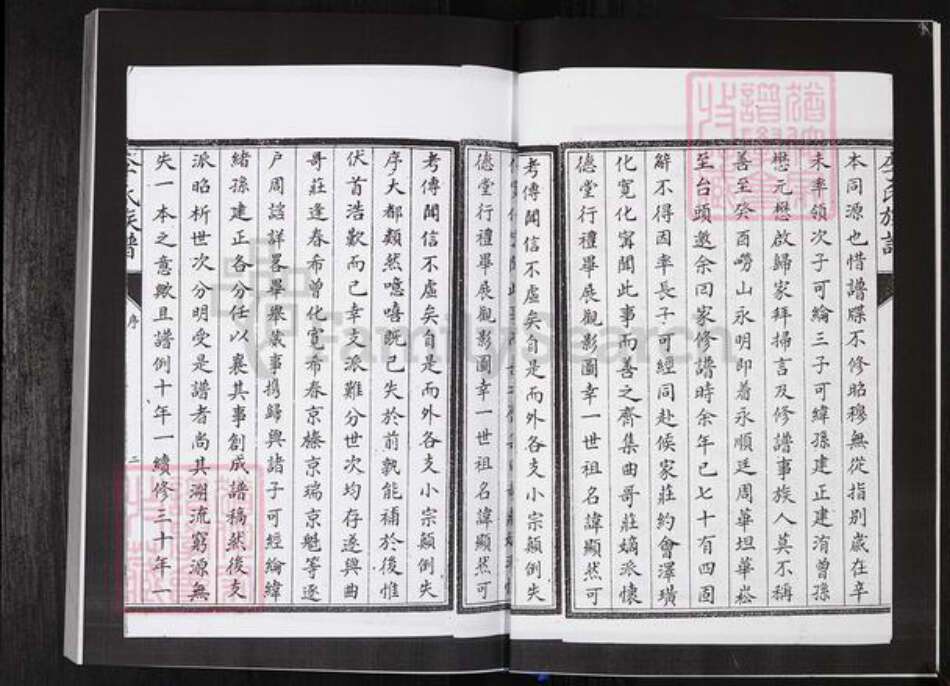 本同源也惜譜牒不修昭穆無從指別歲在辛
未率領次子可綸三子可緯孫建正建洧曾孫
懋元懋啟歸家拜掃言及修譜事族人莫不稱
善至癸酉嶗山永明即着永順廷周華坦華崧
至台頭邀余回家修譜時余年已七十有四固
辭不得因率長子可經同赴候家莊約會澤璜
化寬化甯聞此事而善之齊集曲哥莊嫡派懷
德堂行禮畢展觀影圖幸一世祖名諱顯然可
考傳聞信不虛矣自是而外各支小宗顛倒失
德堂行禮畢展觀影圖幸一世祖名諱顯然可
考傳聞信不虛矣自是而外各支小宗顛倒失
序大都類然噫嘻既已失於前孰能補於後惟
伏首浩歎而已幸支派難分世次均存遂與曲
哥莊逢春希曾化寬希春京榛京瑞京魁等逐
戶周諮詳畧畢舉蕆事携歸與諸子可經綸緯
緒孫建正各分任以襄其事創成譜稿然後支
派昭析世次分明受是譜者尚其溯流窮源無
失一本之意歟且譜例十年一續修三十年一
氏族譜
序
二
FamilySearch